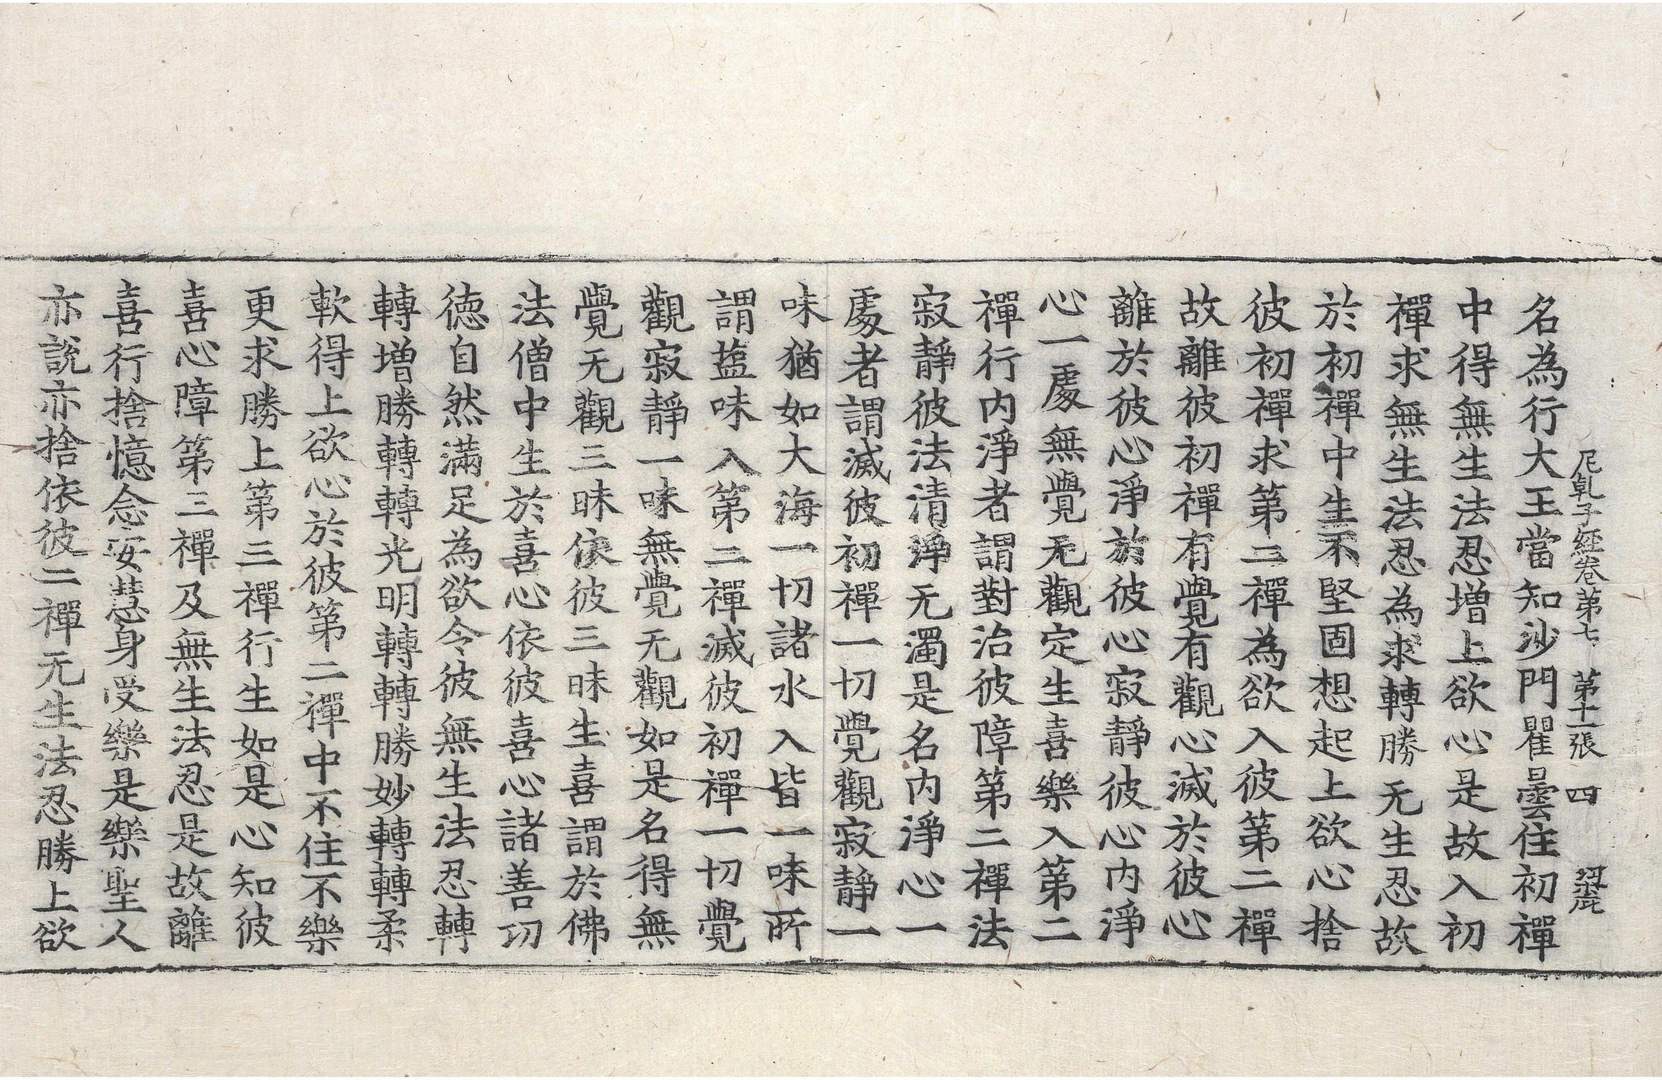 尼乹子經卷第七 第十一張 四
名為行大王當知沙門瞿曇住初禪
中得無生法忍增上欲心是故入初
禪求無生法忍為求轉勝无生忍故
於初禪中生不堅固想起上欲心捨
彼初禪求第二禪為欲入彼第二禪
故離彼初禪有覺有觀心滅於彼心
離於彼心淨於彼心寂靜彼心內淨
心一處無覺无觀定生喜樂入第二
禪行內淨者謂對治彼障第二禪法
寂靜彼法清淨无濁是名內淨心一
處者謂滅彼初禪一切覺觀寂靜一
味猶如大海一切諸水入皆一味所
謂䀋味入第二禪滅彼初禪一切覺
觀寂靜一味無覺无觀如是名得無
覺无觀三昧依彼三昧生喜謂於佛
法僧中生於喜心依彼喜心諸善功
德自然滿足為欲令彼無生法忍轉
轉增勝轉轉光明轉轉勝妙轉轉柔
軟得上欲心於彼第二禪中不住不樂
更求勝上第三禪行生如是心知彼
喜心障第三禪及無生法忍是故離
喜行捨憶念安慧身受樂是樂聖人
亦說亦捨依彼二禪无生法忍勝上欲